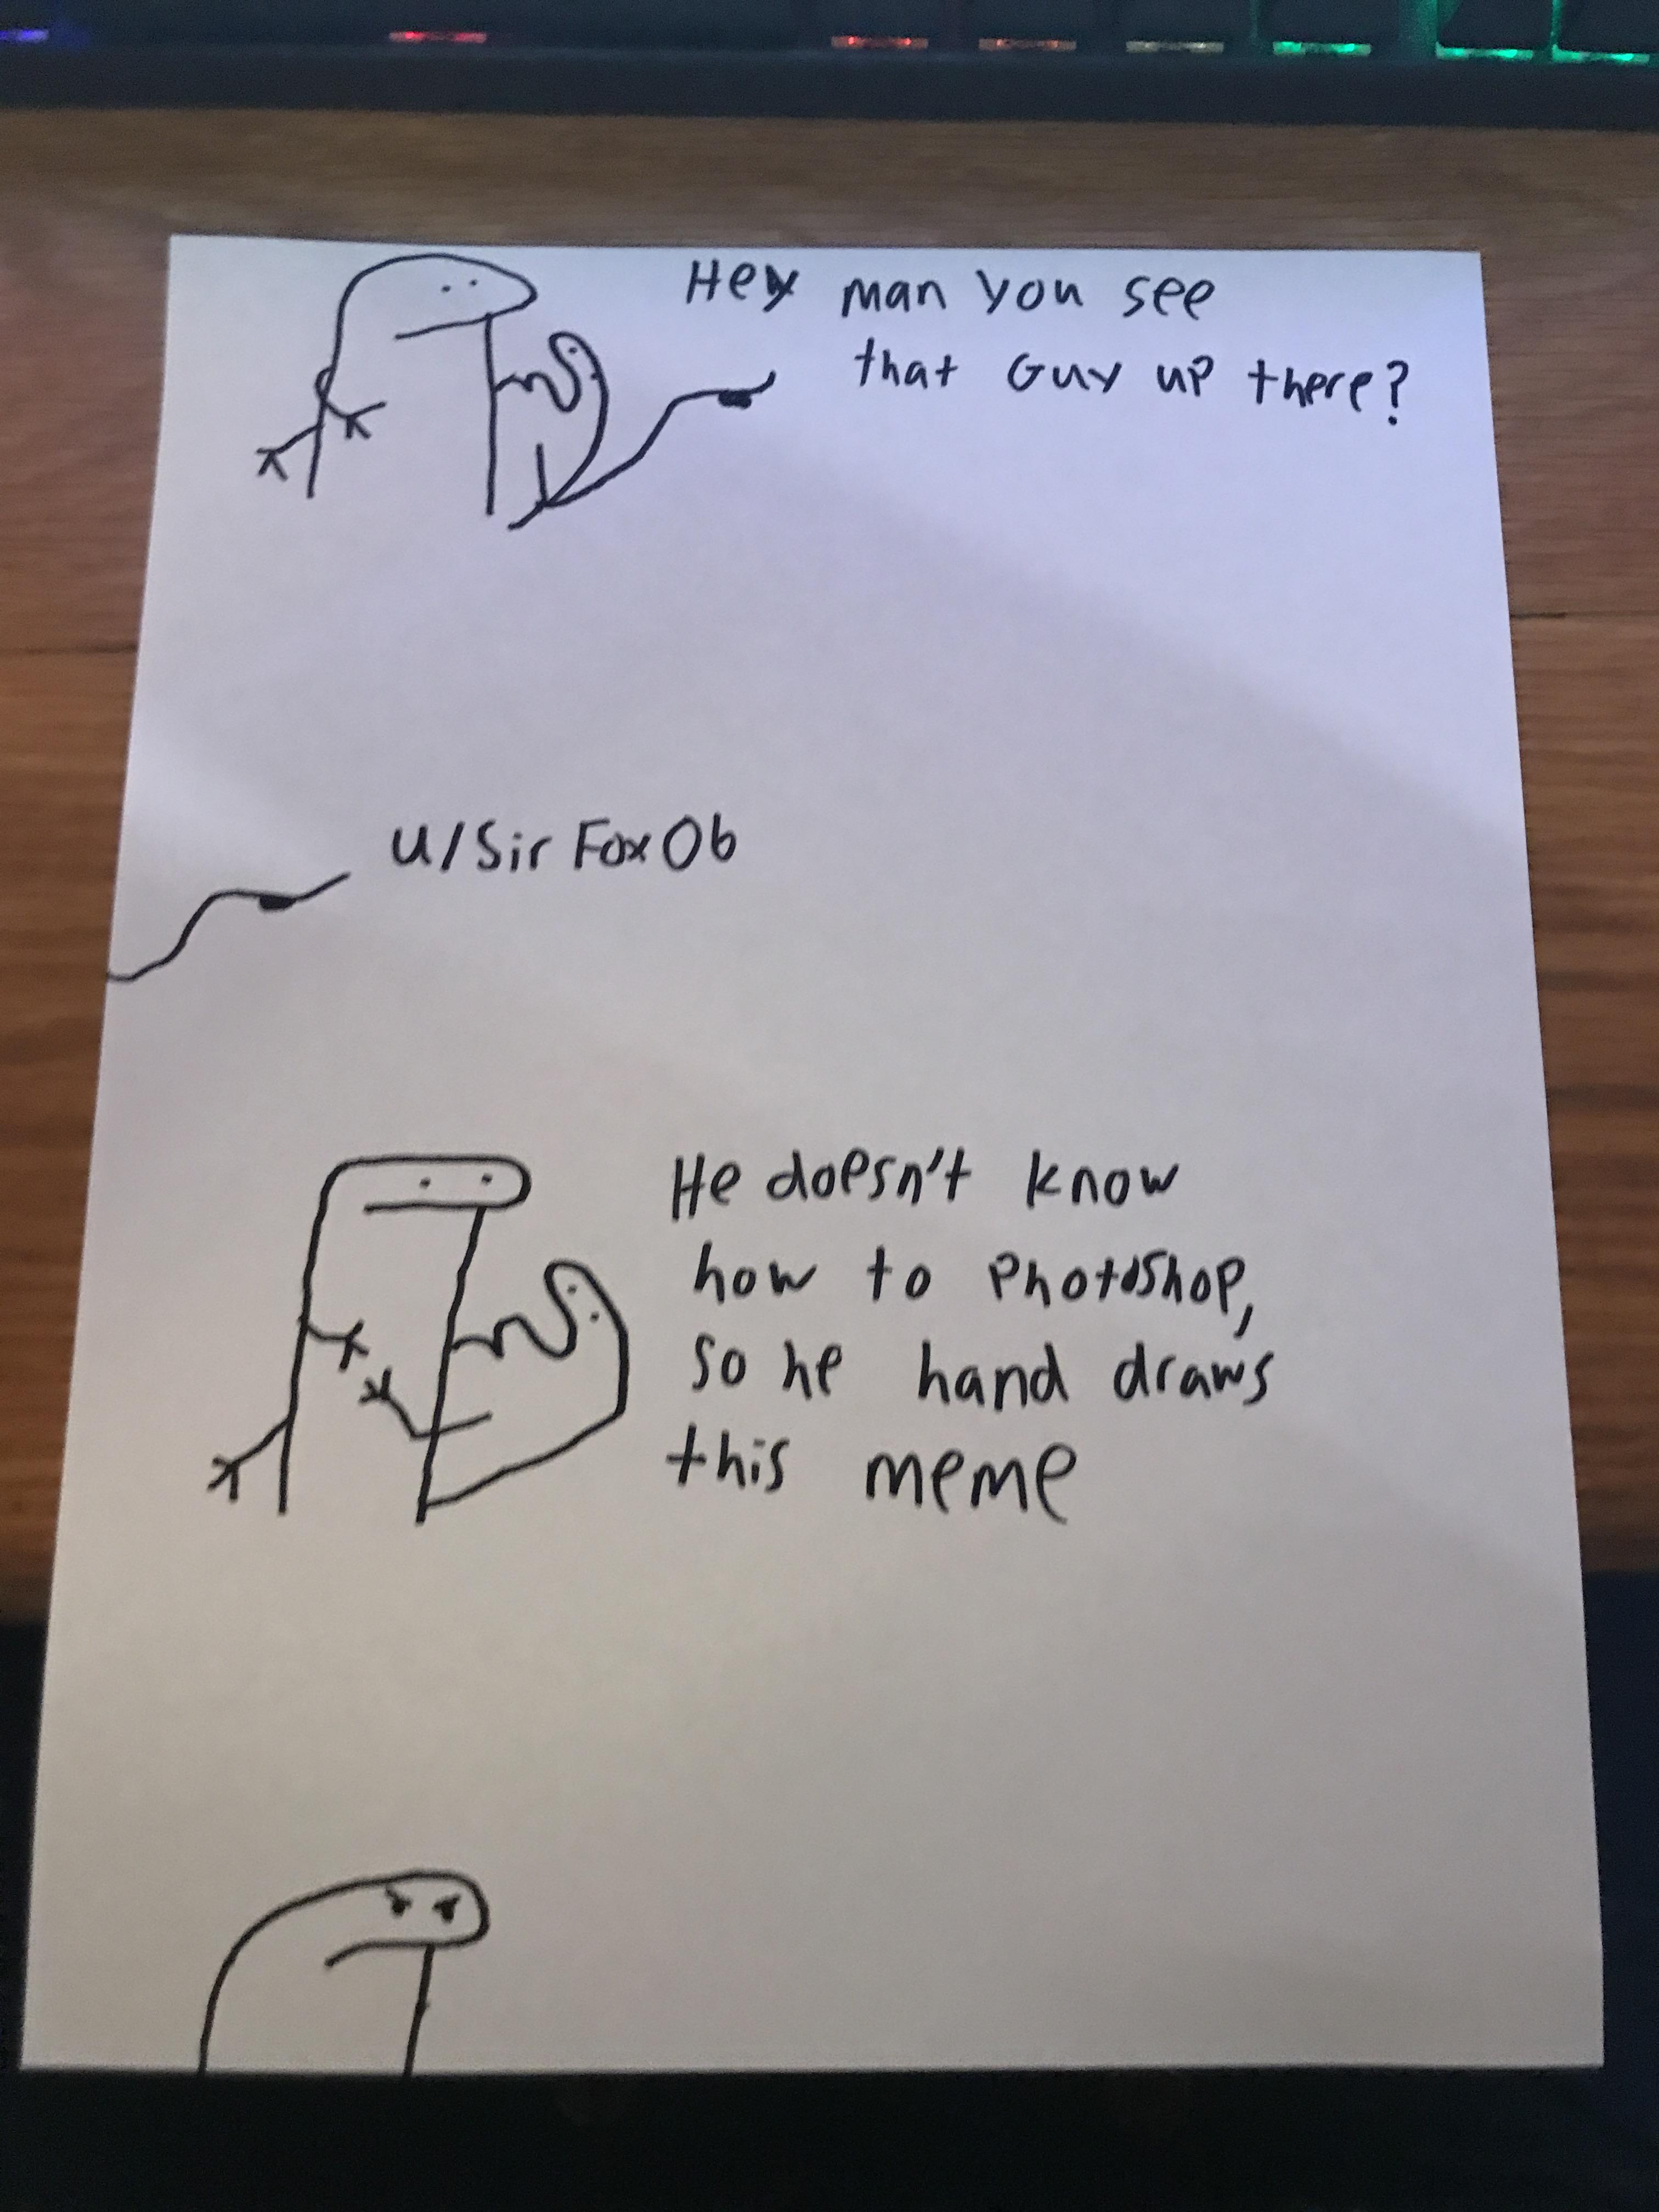 Hey man you see
that Guy up there?
u/Sir Fox Ob
He doesn't know
how to Photoshop,
so he hand draws
this meme